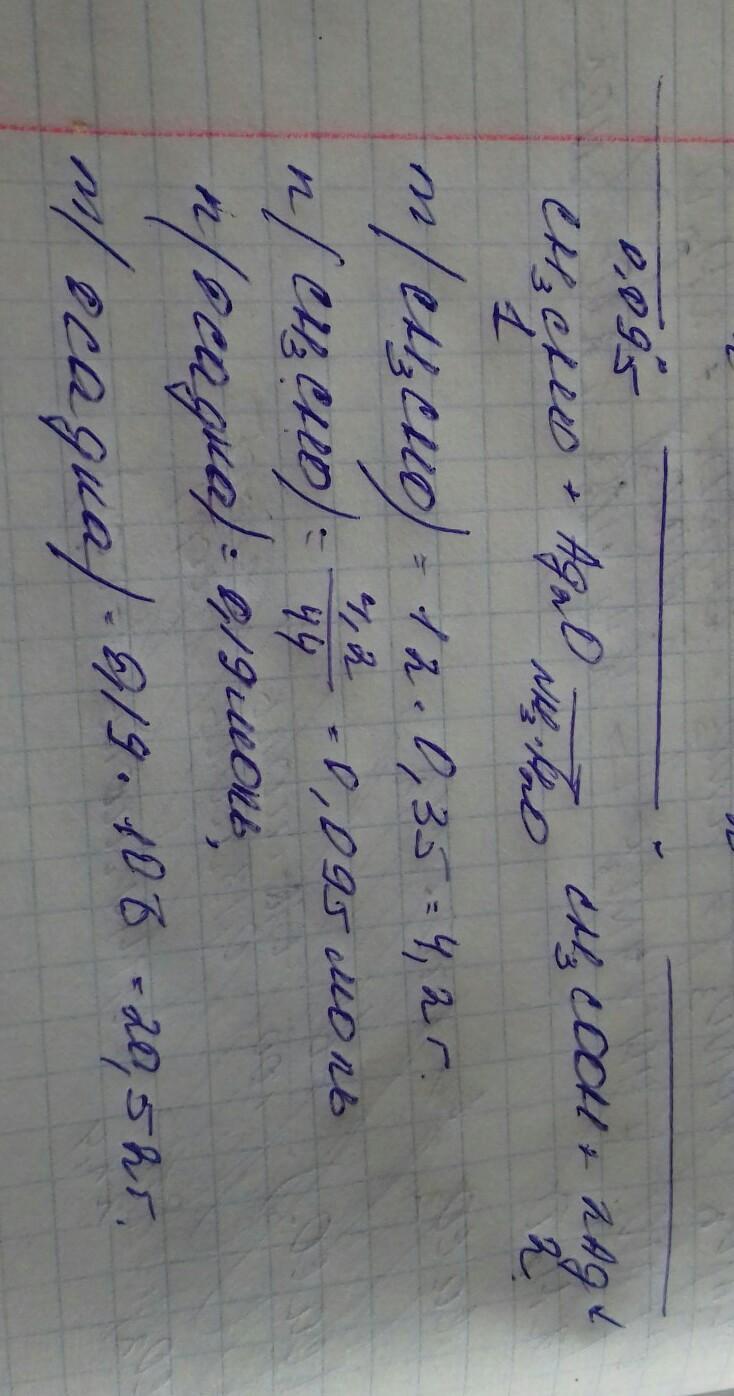 0,095
CH₃CHO + Ag₂O NH₃·H₂O → CH₃COOH + 2Ag↓
1 2
m(CH₃CHO) = 12 · 0,35 = 4,2 г.
n(CH₃CHO) = 4,2/44 = 0,095 моль
n(осадка) = 0,19 моль,
m(осадка) = 0,19 · 108 = 20,52 г.